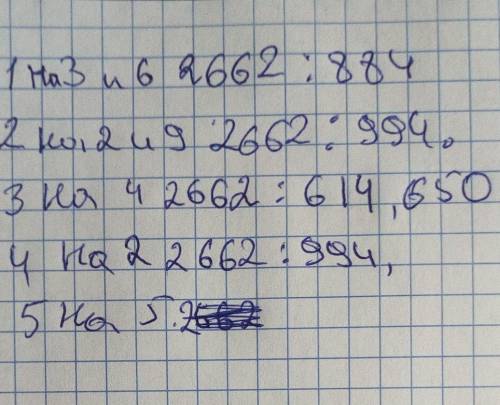 1 на 3 и 6 2662 : 884
2 на 2 и 9 2662 : 994.
3 на 4 2662 : 614,650
4 на 2 2662 : 994,
5 на 5.2